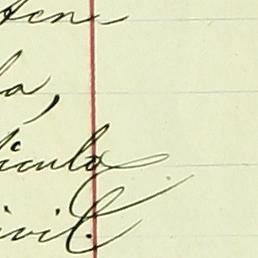 ten
la,
ticulo
ivil.